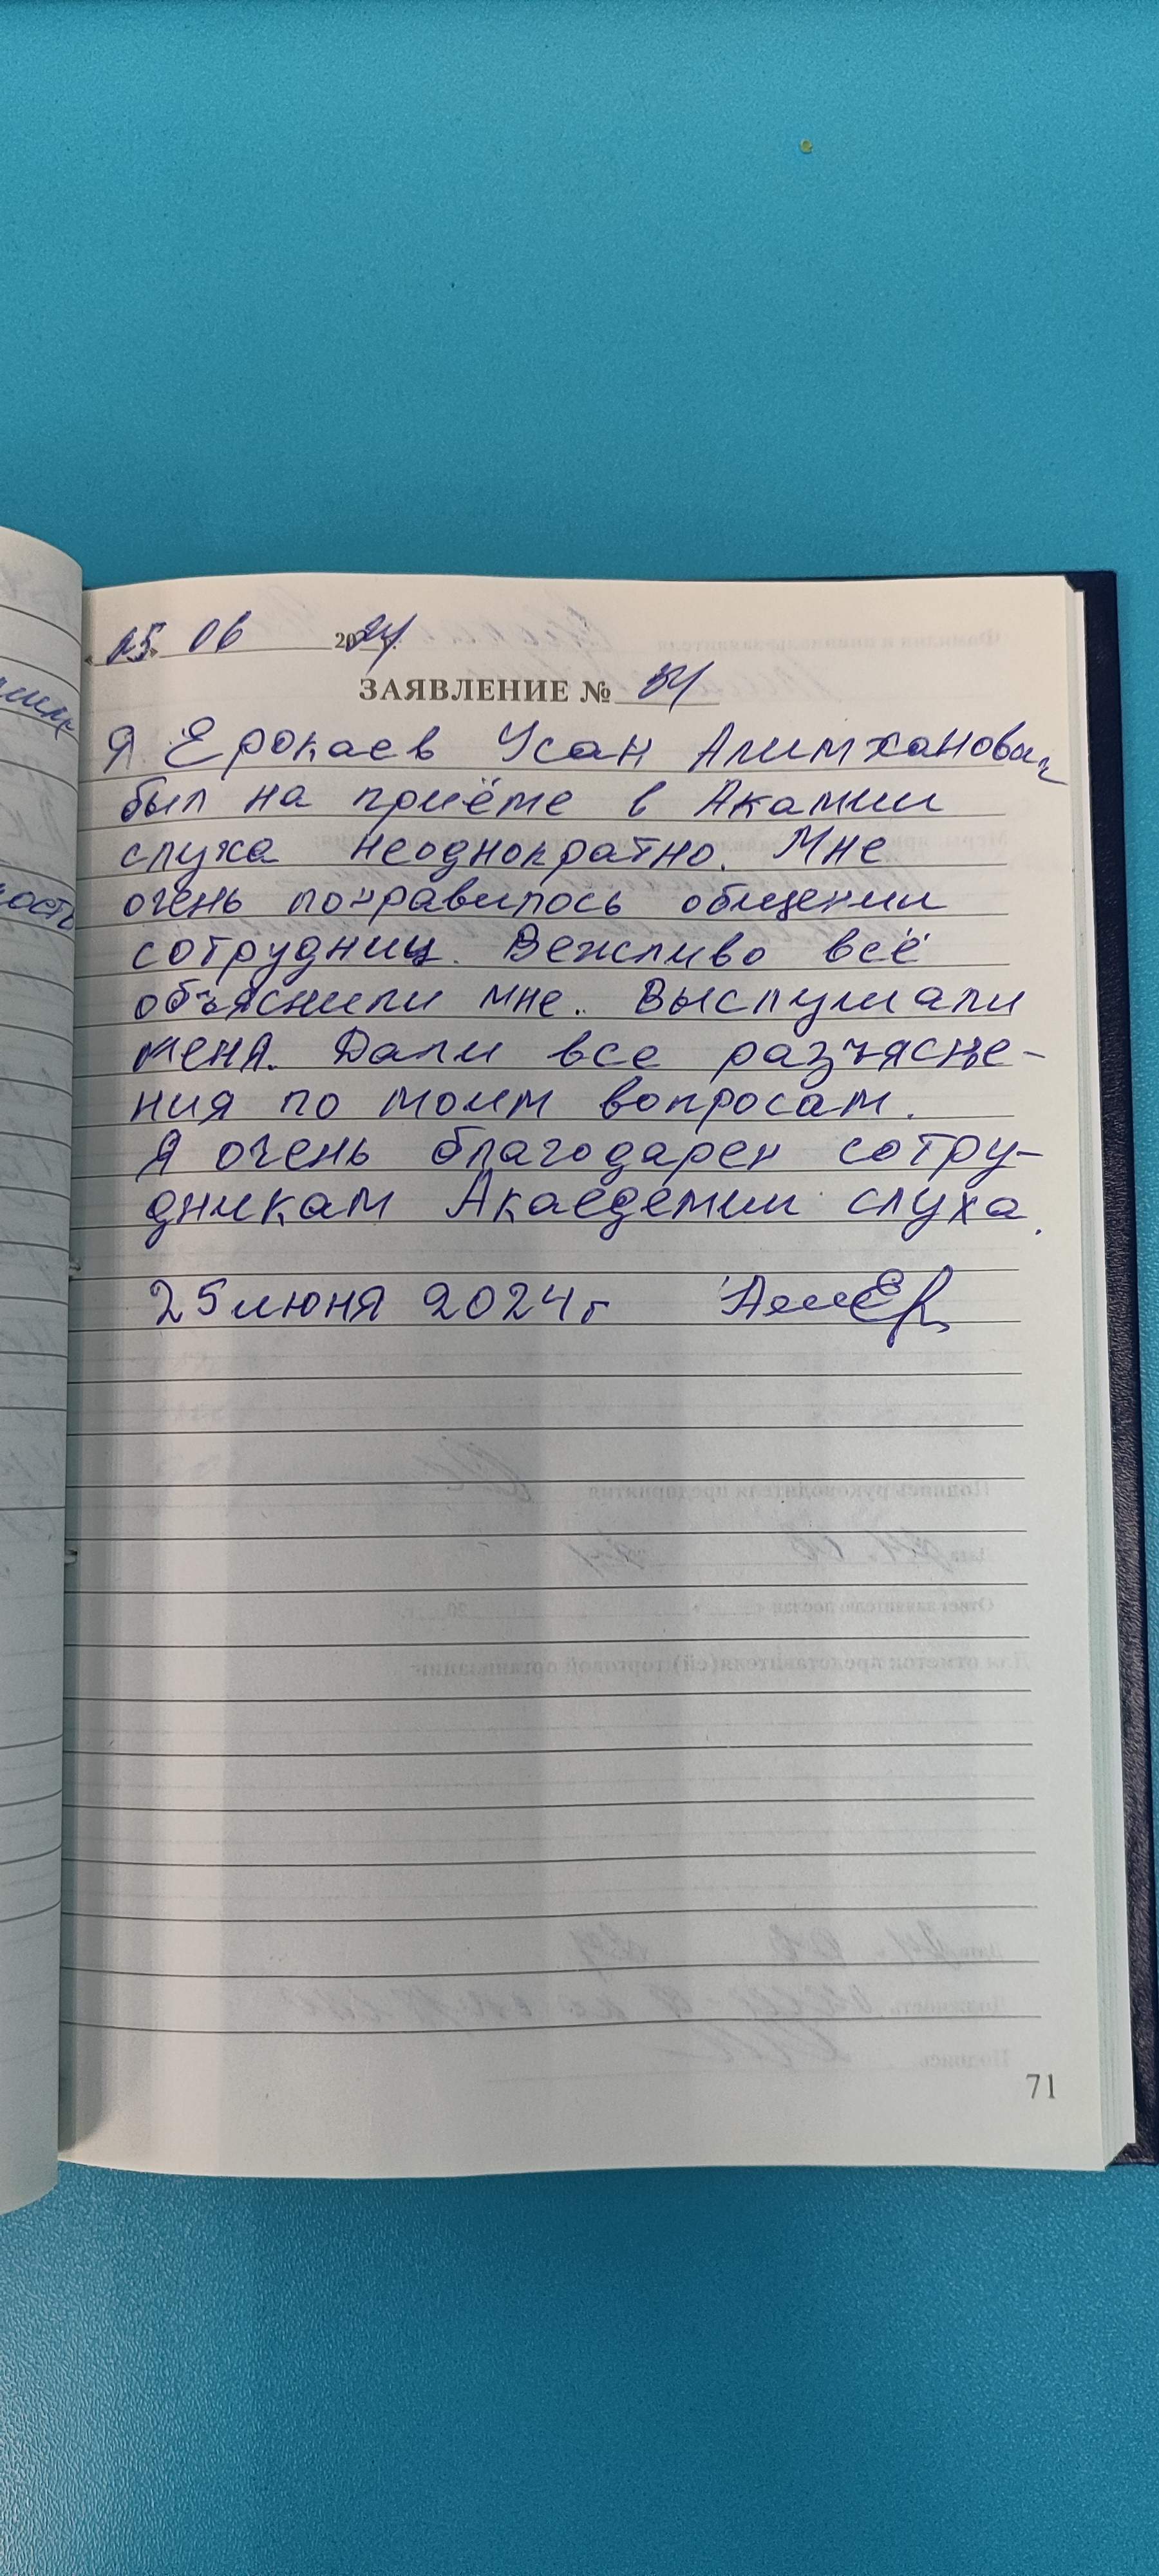 25 06 2024
ЗАЯВЛЕНИЕ №
Я Ерокаев Усан Алимханович
был на приёме в Акамии
слуха неоднократно. Мне
очень понравилось общении
сотрудниц. Вежливо всё
объяснили мне. Выслушали
меня. Дали все разъясне-
ния по моим вопросам.
Я очень благодарен сотру-
дникам Акаедемии слуха.
25 июня 2024 г
71